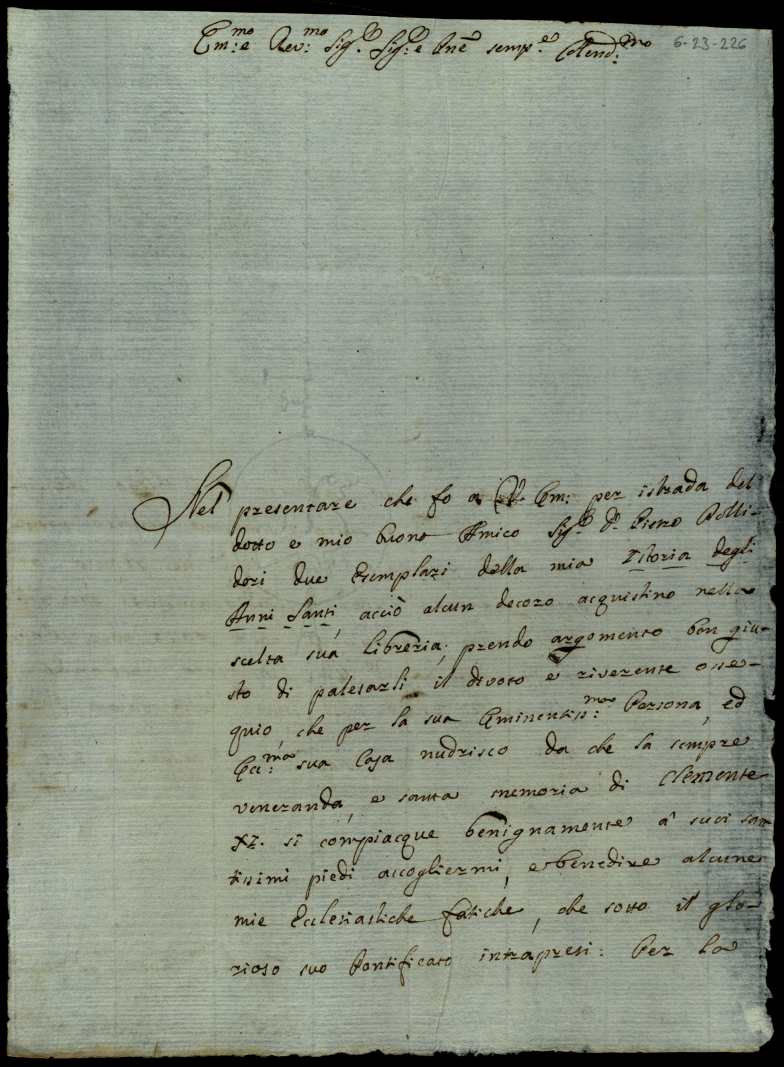 Em:mo e Rev:mo Sig.r Sig:r e Pne semp:e Colend:mo
6-23-226
Nel presentare che fo a V. Em: per istrada del
dotto e mio buono Amico Sig.r D. Pietro Polli-
dori due Esemplari della mia Istoria degli
Anni Santi, acciò alcun decoro acquistino nella
scelta sua libreria; prendo argomento ben giu-
sto di palesarli il divoto e riverente osse-
quio, che per la sua Eminentiss:ma Persona, ed
Ecc:ma sua Casa nudrisco da che la sempre
veneranda, e santa memoria di Clemente
XI. si compiacque benignamente a' suoi san
tissimi piedi accogliermi, e benedire alcune
mie Ecclesiastiche fatiche, che sotto il glo-
rioso suo Pontificato intrapresi: Per la